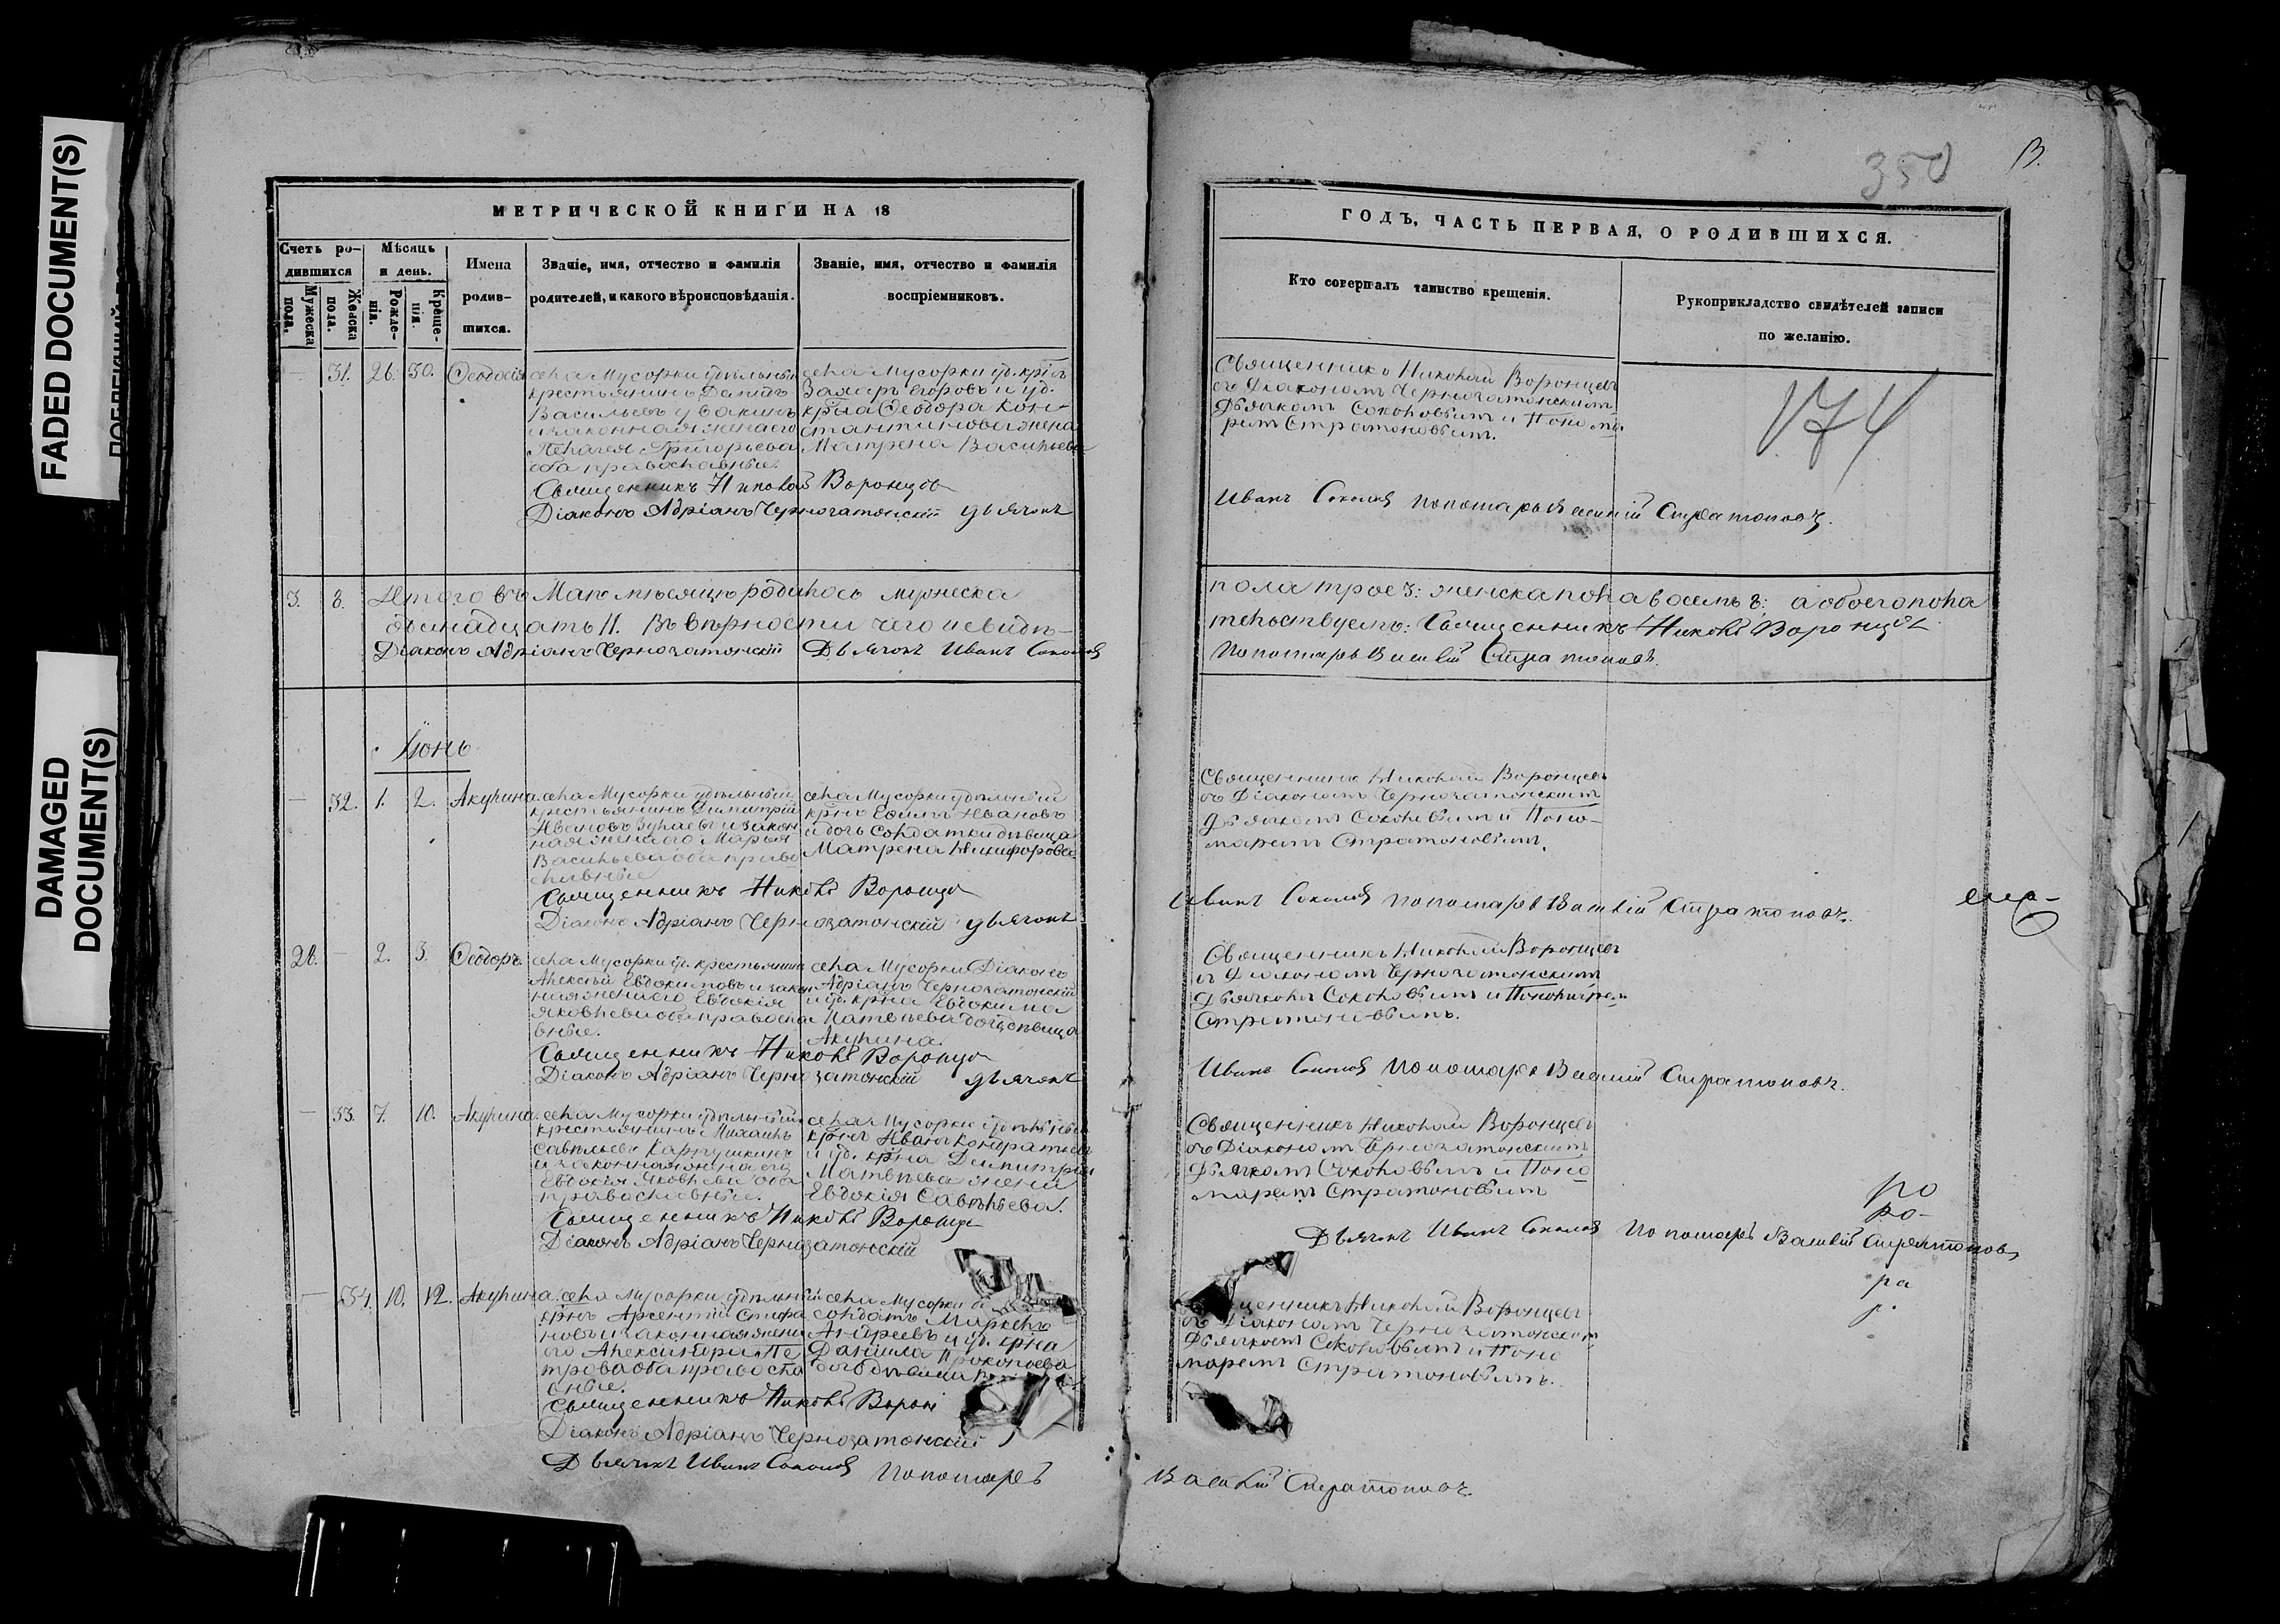 FADED DOCUMENT(S)
DAMAGED DOCUMENT(S)
МЕТРИЧЕСКОЙ КНИГИ НА 18
Счетъ родившихся
Мужеска пола.
Женска пола.
Мѣсяцъ и день.
Рожденія.
Крещенія.
Имена родившихся.
Званіе, имя, отчество и фамилія
родителей, и какого вѣроисповѣданія.
Званіе, имя, отчество и фамилія
воспріемниковъ.
— 31. 26. 30. Ѳеодосія
села Мусорки удѣльный
крестьянинъ
Васильевъ
и законная жена его
Пелагея Григорьева
оба православные.
села Мусорки уд. крнъ
Егоровъ и уд.
крна Ѳеодора Кон-
стантинова жена
Матрена Васильева
Священникъ Николай Воронцовъ
Діаконъ Адріанъ Чернозатонскій дьячокъ
3. 8. Итого въ Маѣ мѣсяцѣ родилось мужеска
одинадцать 11. Въ вѣрности чего свидѣ-
Діаконъ Адріанъ Чернозатонскій Дьячокъ Иванъ Соколов
Іюнь
— 32. 1. 2. Акулина.
села Мусорки удѣльный
крестьянинъ Димитрій
Ивановъ и закон
ная жена его Марья
Васильева оба право
славные
села Мусорки удѣльный
крнъ Ефимъ Ивановъ
и дочь солдатки дѣвица
Матрена Никифорова.
Священникъ Николай Воронцов
Діаконъ Адріанъ Чернозатонскій дьячокъ
26. — 2. 3. Ѳеодоръ.
села Мусорки уд. крестьянинъ
Алексѣй Евдокимовъ и закон
ная жена его Евдокія
Яковлева оба правосла
вные.
села Мусорки Діаконъ
Адріанъ Чернозатонскій
и уд. крна Евдокима
дочь дѣвица
Акулина.
Священникъ Николай Воронцов
Діаконъ Адріанъ Чернозатонскій дьячокъ
— 33. 7. 10. Акулина.
села Мусорки удѣльный
крестьянинъ Михаилъ
Савельевъ
и законная жена его
Евдокія Яковлева оба
православные.
села Мусорки удѣльный
крнъ Иванъ Кондратьевъ
и уд. крна Димитрія
Матвѣева жена
Евдокія Савельева.
Священникъ Николай Воронцов
Діаконъ Адріанъ Чернозатонскій
— 34. 10. 12. Акулина.
села Мусорки удѣльный
крнъ Арсентій Стифа
новъ и законная жена
его Александра Пе
трова оба правосла
вные.
села Мусорки
солдатъ Маркелъ
Андреевъ и уд. крна
Данила Прокопьева
дочь дѣвица
Священникъ Николай
Діаконъ Адріанъ Чернозатонскій
Дьячокъ Иванъ Соколов Пономарь
350
ГОДЪ, ЧАСТЬ ПЕРВАЯ, О РОДИВШИХСЯ.
Кто совершалъ таинство крещенія.
Рукоприкладство свидѣтелей записи
по желанію.
174
Священникъ Николай Воронцовъ
съ Діакономъ Чернозатонскимъ
Дьячкомъ Соколовымъ и Понома
ремъ Стратоновымъ.
Иванъ Соколов пономарь Василій Стратоновъ.
пола трое 3: женска пола восемь 8: а обоего пола
тельствуемъ: Священникъ Николай Воронцов
Пономарь Василій Стратоновъ.
Священникъ Николай Воронцовъ
съ Діакономъ Чернозатонскимъ
Дьячкомъ Соколовымъ и Поно-
маремъ Стратоновымъ.
Иванъ Соколов пономарь Василій Стратоновъ.
Священникъ Николай Воронцовъ
съ Діакономъ Чернозатонскимъ
Дьячкомъ Соколовымъ и Пономаремъ
Стратоновымъ.
Иванъ Соколов Пономарь Василій Стратоновъ.
Священникъ Николай Воронцовъ
съ Діакономъ Чернозатонскимъ
Дьячкомъ Соколовымъ и Поно
маремъ Стратоновымъ
ро
ро-
Дьячокъ Иванъ Соколов Пономарь Василій Стратоновъ
ра
р.
Николай Воронцовъ
съ Діакономъ Чернозатонскимъ
Дьячкомъ Соколовымъ и Поно
маремъ Стратоновымъ.
Василій Стратоновъ